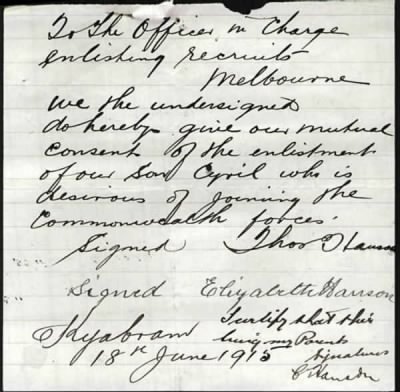 To The Officer in Charge
enlisting recruits
Melbourne
we the undersigned
do hereby give our mutual
Consent of the enlistment
of our Son Cyril who is
desirous of joining the
Commonwealth forces.
Signed Thos Hanson
Signed Elizabeth Hanson
Kyabram I certify that this
being my Parents
18th June 1915 signatures
C Hanson